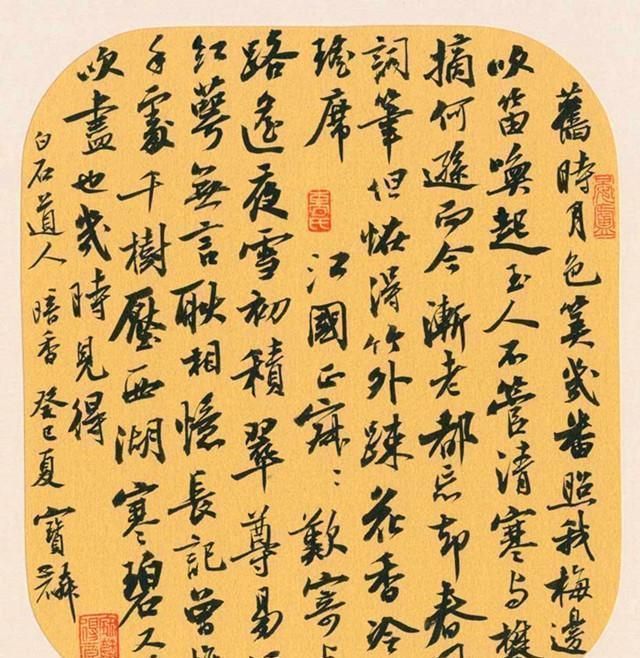 舊時月色算幾番照我梅邊
吹笛喚起玉人不管清寒与攀
摘何遜而今漸老都忘却春
詞筆但恠得竹外踈花香冷
瑤席 江國正寂〻歎寄与
路遙夜雪初積翠尊易
紅萼無言耿相憶長記曾
手處千樹壓西湖寒碧又
吹盡也幾時見得
白石道人 暗香 癸巳夏 寶麟